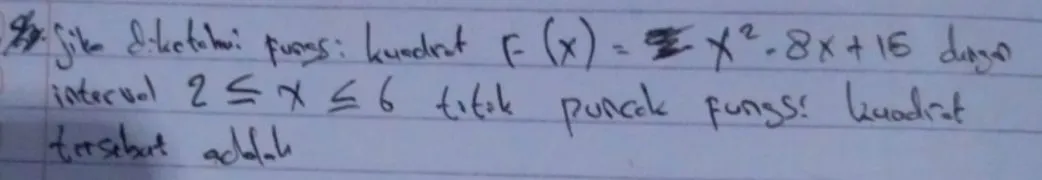 Jika diketahui fungsi kuadrat F(x) = x² - 8x + 15 dengan
interval 2 ≤ x ≤ 6 titik puncak fungsi kuadrat
tersebut adalah